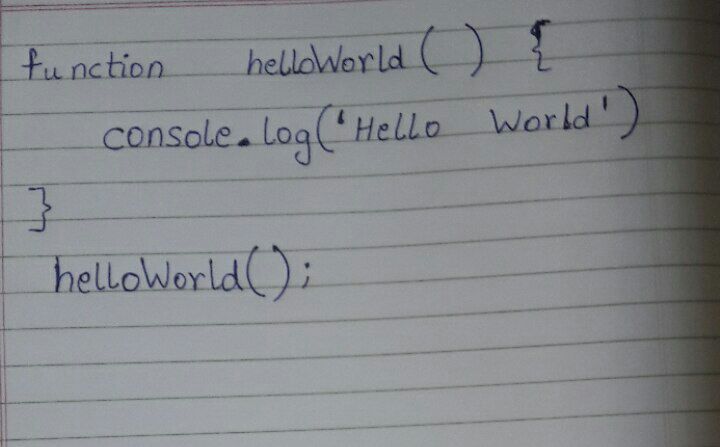 function helloWorld() {
console.log('Hello World')
}
helloWorld();